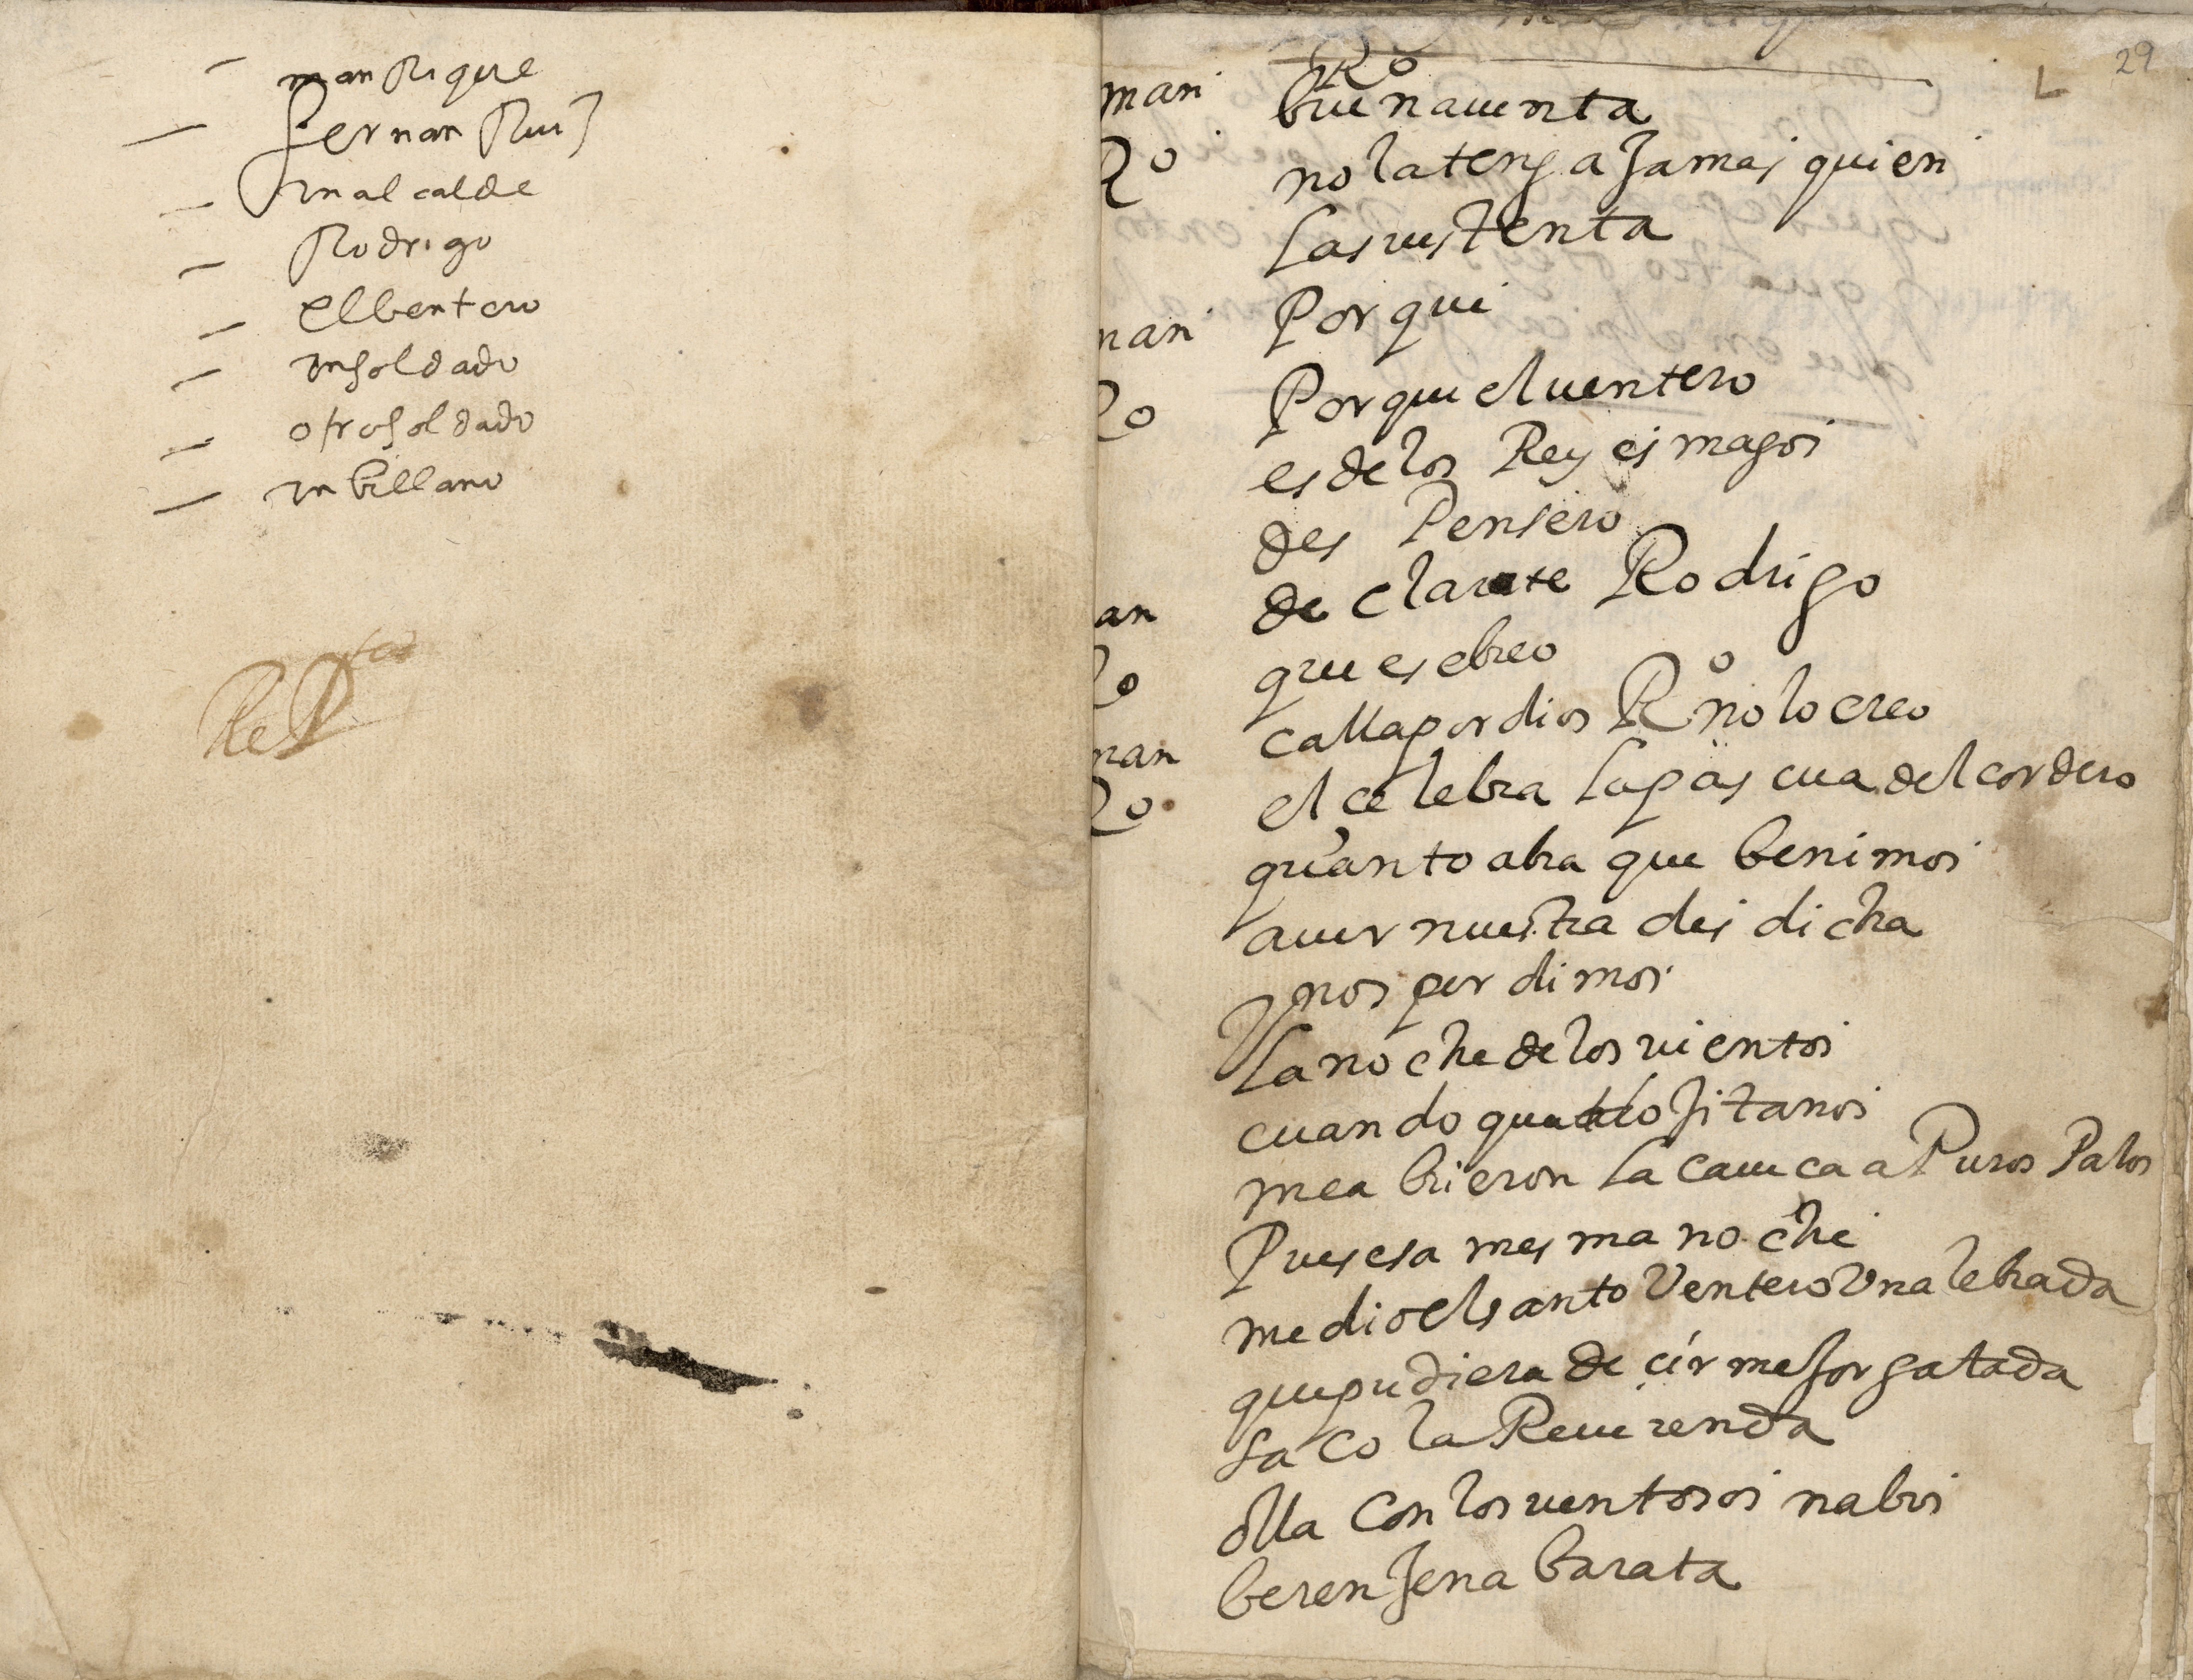 manRique
fernan Ruiz
un alcalde
Rodrigo
el bentero
un soldado
otro soldado
un billano
29
Ro
man buena uenta
Ro no la tenga Jamas quien
la sustenta
man Por que
Ro Por que el uentero
es de los Reyes magos
des Pensero
man declarate Rodrigo
Ro que es ebreo
man calla por dios Ro no lo creo
Ro el celebra la pascua del cordero
quanto abra que benimos
a uer nuestra des dicha
y nos perdimos
la noche de los uientos
cuando quatro Jitanos
me abrieron la caueca a Puros Palos
Pues esa mesma noche
me dio el santo Ventero Una lebrada
que pudiera decir meJor gatada
saco la Reuerenda
olla Con los uentosos nabos
berenJena barata